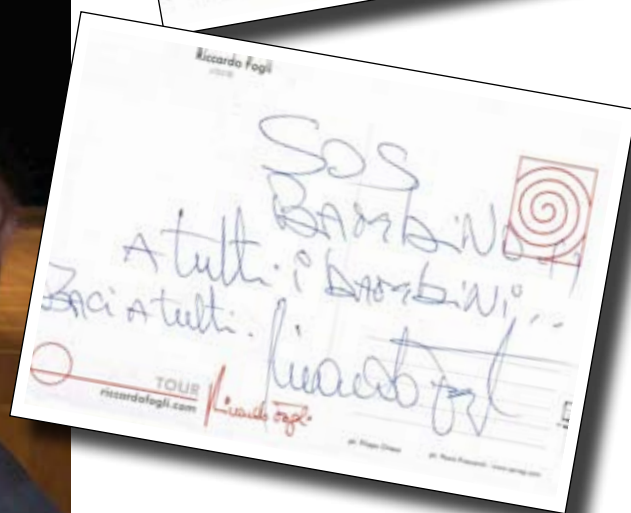 Riccardo Fogli
SOS
BAMBINO
A tutti i bambini...
Baci a tutti.
Riccardo Fogli
TOUR
riccardofogli.com
Riccardo Fogli